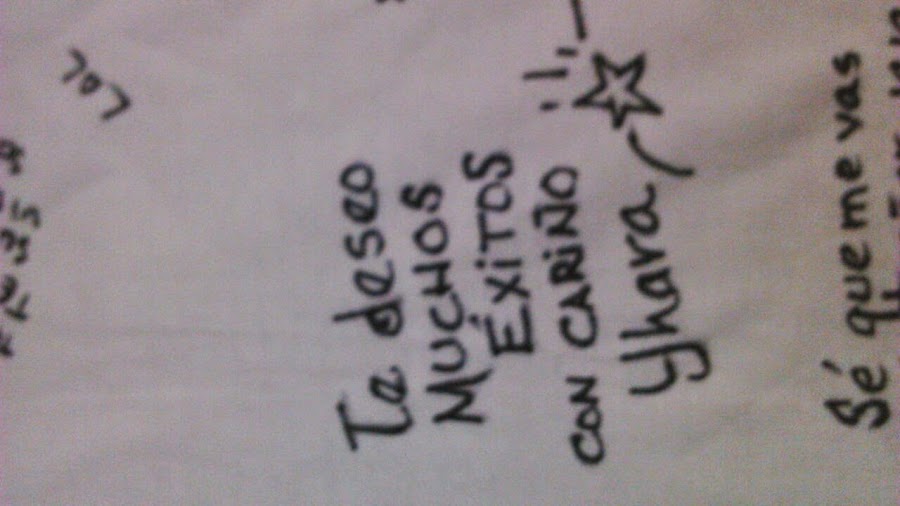 LOL
Te deseo
MUCHOS
ÉXiTOS
CON CARiÑO
Yhara
Sé que me vas